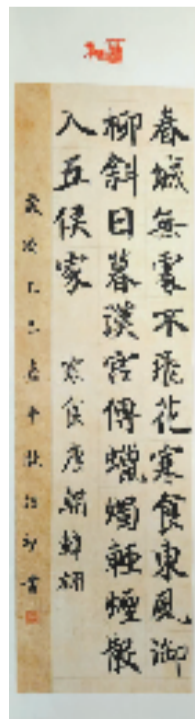 春城無處不飛花寒食東風御
柳斜日暮漢宮傳蠟燭輕煙散
入五侯家 寒食唐韓翃
歲次書